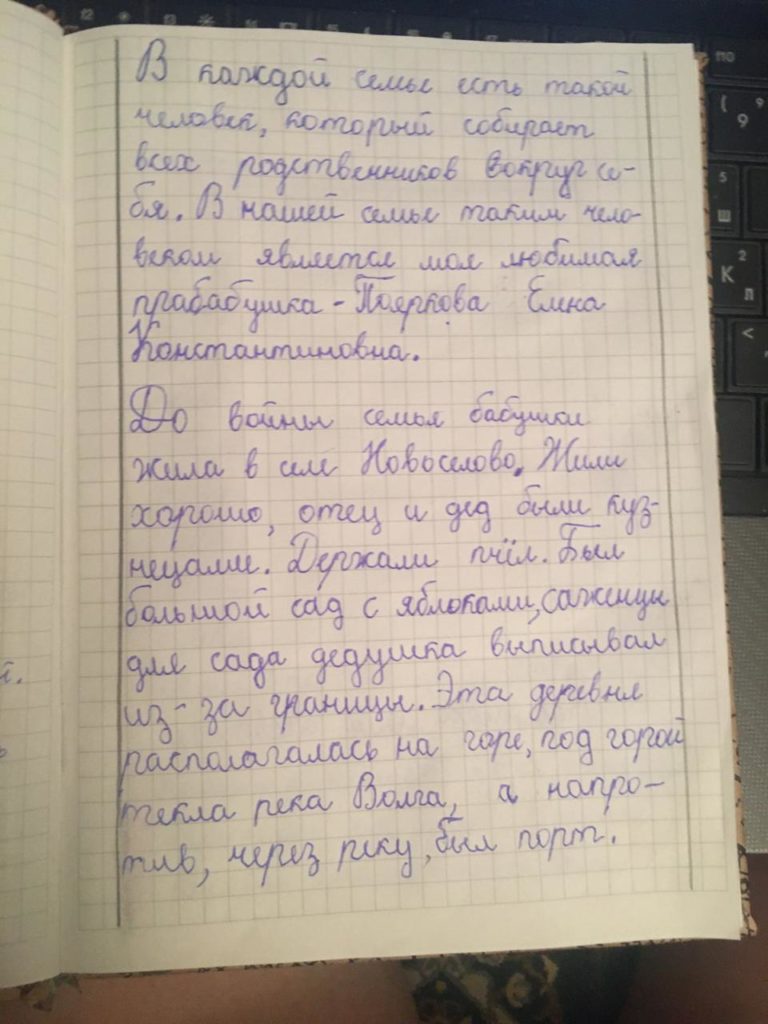 В каждой семье есть такой
человек, который собирает
всех родственников вокруг се-
бя. В нашей семье таким чело-
веком является моя любимая
прабабушка - Пояркова Елена
Константиновна.
До войны семья бабушки
жила в селе Новоселово. Жили
хорошо, отец и дед были куз-
нецами. Держали пчёл. Был
большой сад с яблоками, саженцы
для сада дедушка выписывал
из-за границы. Эта деревня
располагалась на горе, под горой
текла река Волга, а напро-
тив, через реку, был порт.